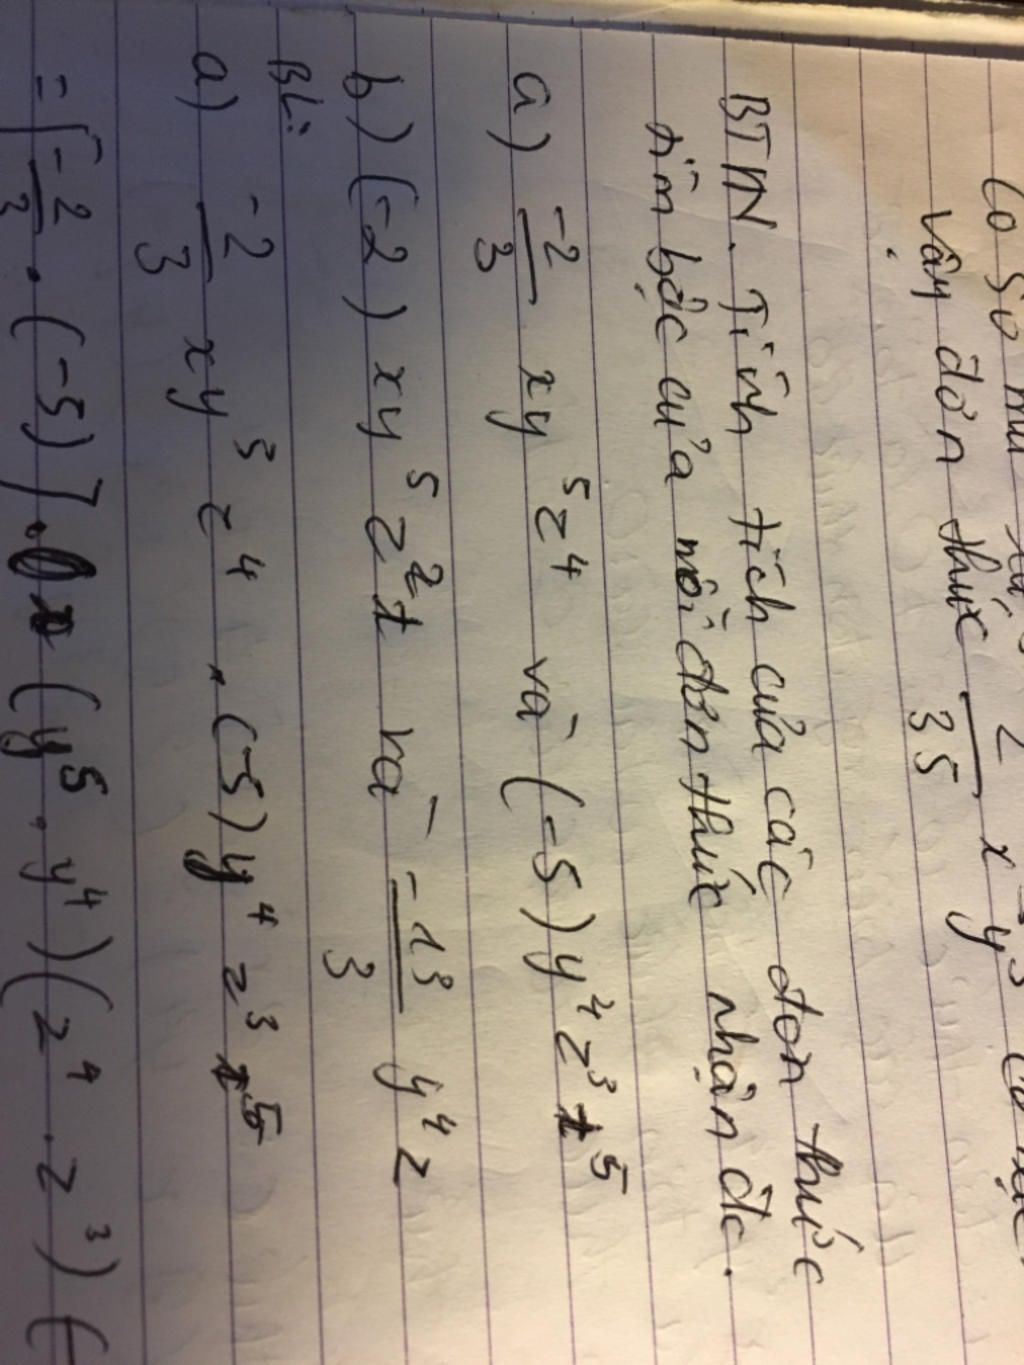 Vậy đơn thức 2/35 x y
BTVN. Tính tích của các đơn thức
tìm bậc của mỗi đơn thức nhận đc.
a) -2/3 xy⁵z⁴ và (-5)y⁴z³t⁵
b) (-2)xy⁵z²t và -13/3 y⁴z
BL:
a) -2/3 xy³z⁴ . (-5)y⁴z³t⁵
= [-2/3 . (-5)] . (y⁵ . y⁴)(z⁴ . z³)(